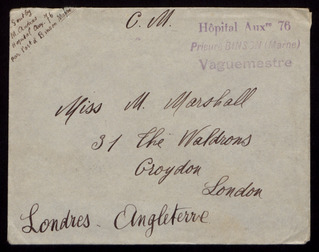 Sent by
Hopital Aux. 76
C. M.
Hôpital Aux^re 76
Prieuré BINSON (Marne)
Vaguemestre
Miss M. Marshall
31 The Waldrons
Croydon
London
Londres - Angleterre